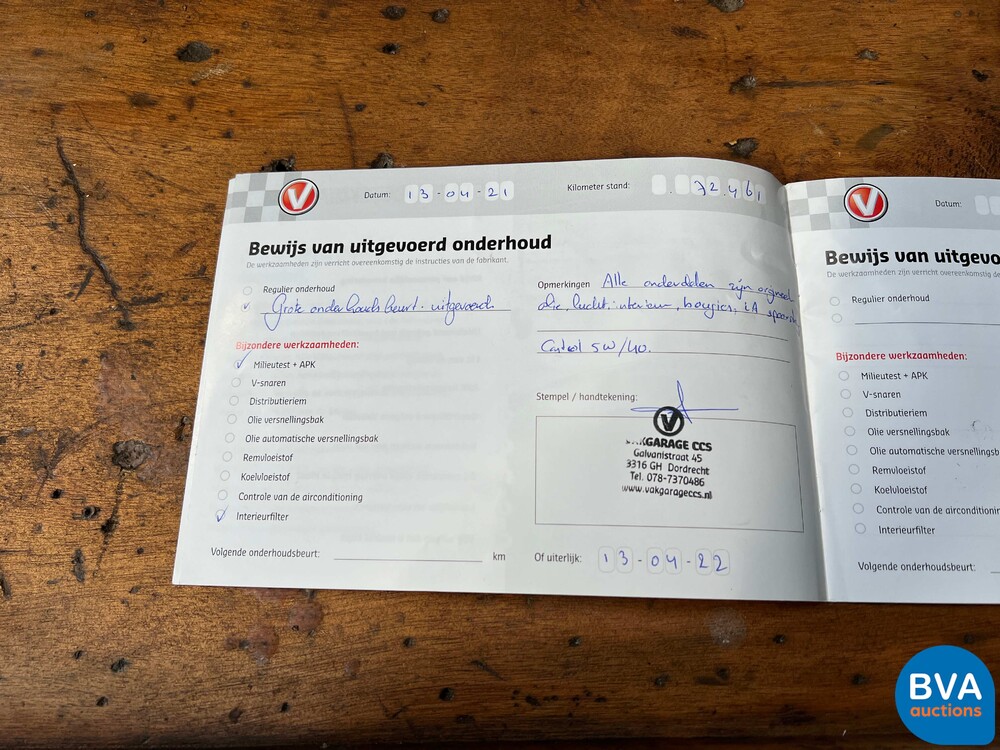 V
Datum: 13-04-21
Kilometer stand: 72.461
Bewijs van uitgevoerd onderhoud
De werkzaamheden zijn verricht overeenkomstig de instructies van de fabrikant.
Regulier onderhoud
Grote onderhouds beurt: uitgevoerd
Bijzondere werkzaamheden:
Milieutest + APK
V-snaren
Distributieriem
Olie versnellingsbak
Olie automatische versnellingsbak
Remvloeistof
Koelvloeistof
Controle van de airconditioning
Interieurfilter
Volgende onderhoudsbeurt: km
Opmerkingen Alle onderdelen zijn orgineel
olie, lucht, interieur, bougies,
Castrol 5W/40.
Stempel / handtekening:
V
VAKGARAGE CCS
Galvanistraat 45
3316 GH Dordrecht
Tel. 078-7370486
www.vakgarageccs.nl
Of uiterlijk: 13-04-22
V
Datum:
Bewijs van uitgevo
De werkzaamheden zijn verricht overeenkomstig de in
Regulier onderhoud
Bijzondere werkzaamheden:
Milieutest + APK
V-snaren
Distributieriem
Olie versnellingsbak
Olie automatische versnellingsb
Remvloeistof
Koelvloeistof
Controle van de airconditionin
Interieurfilter
Volgende onderhoudsbeurt:
BVA
auctions